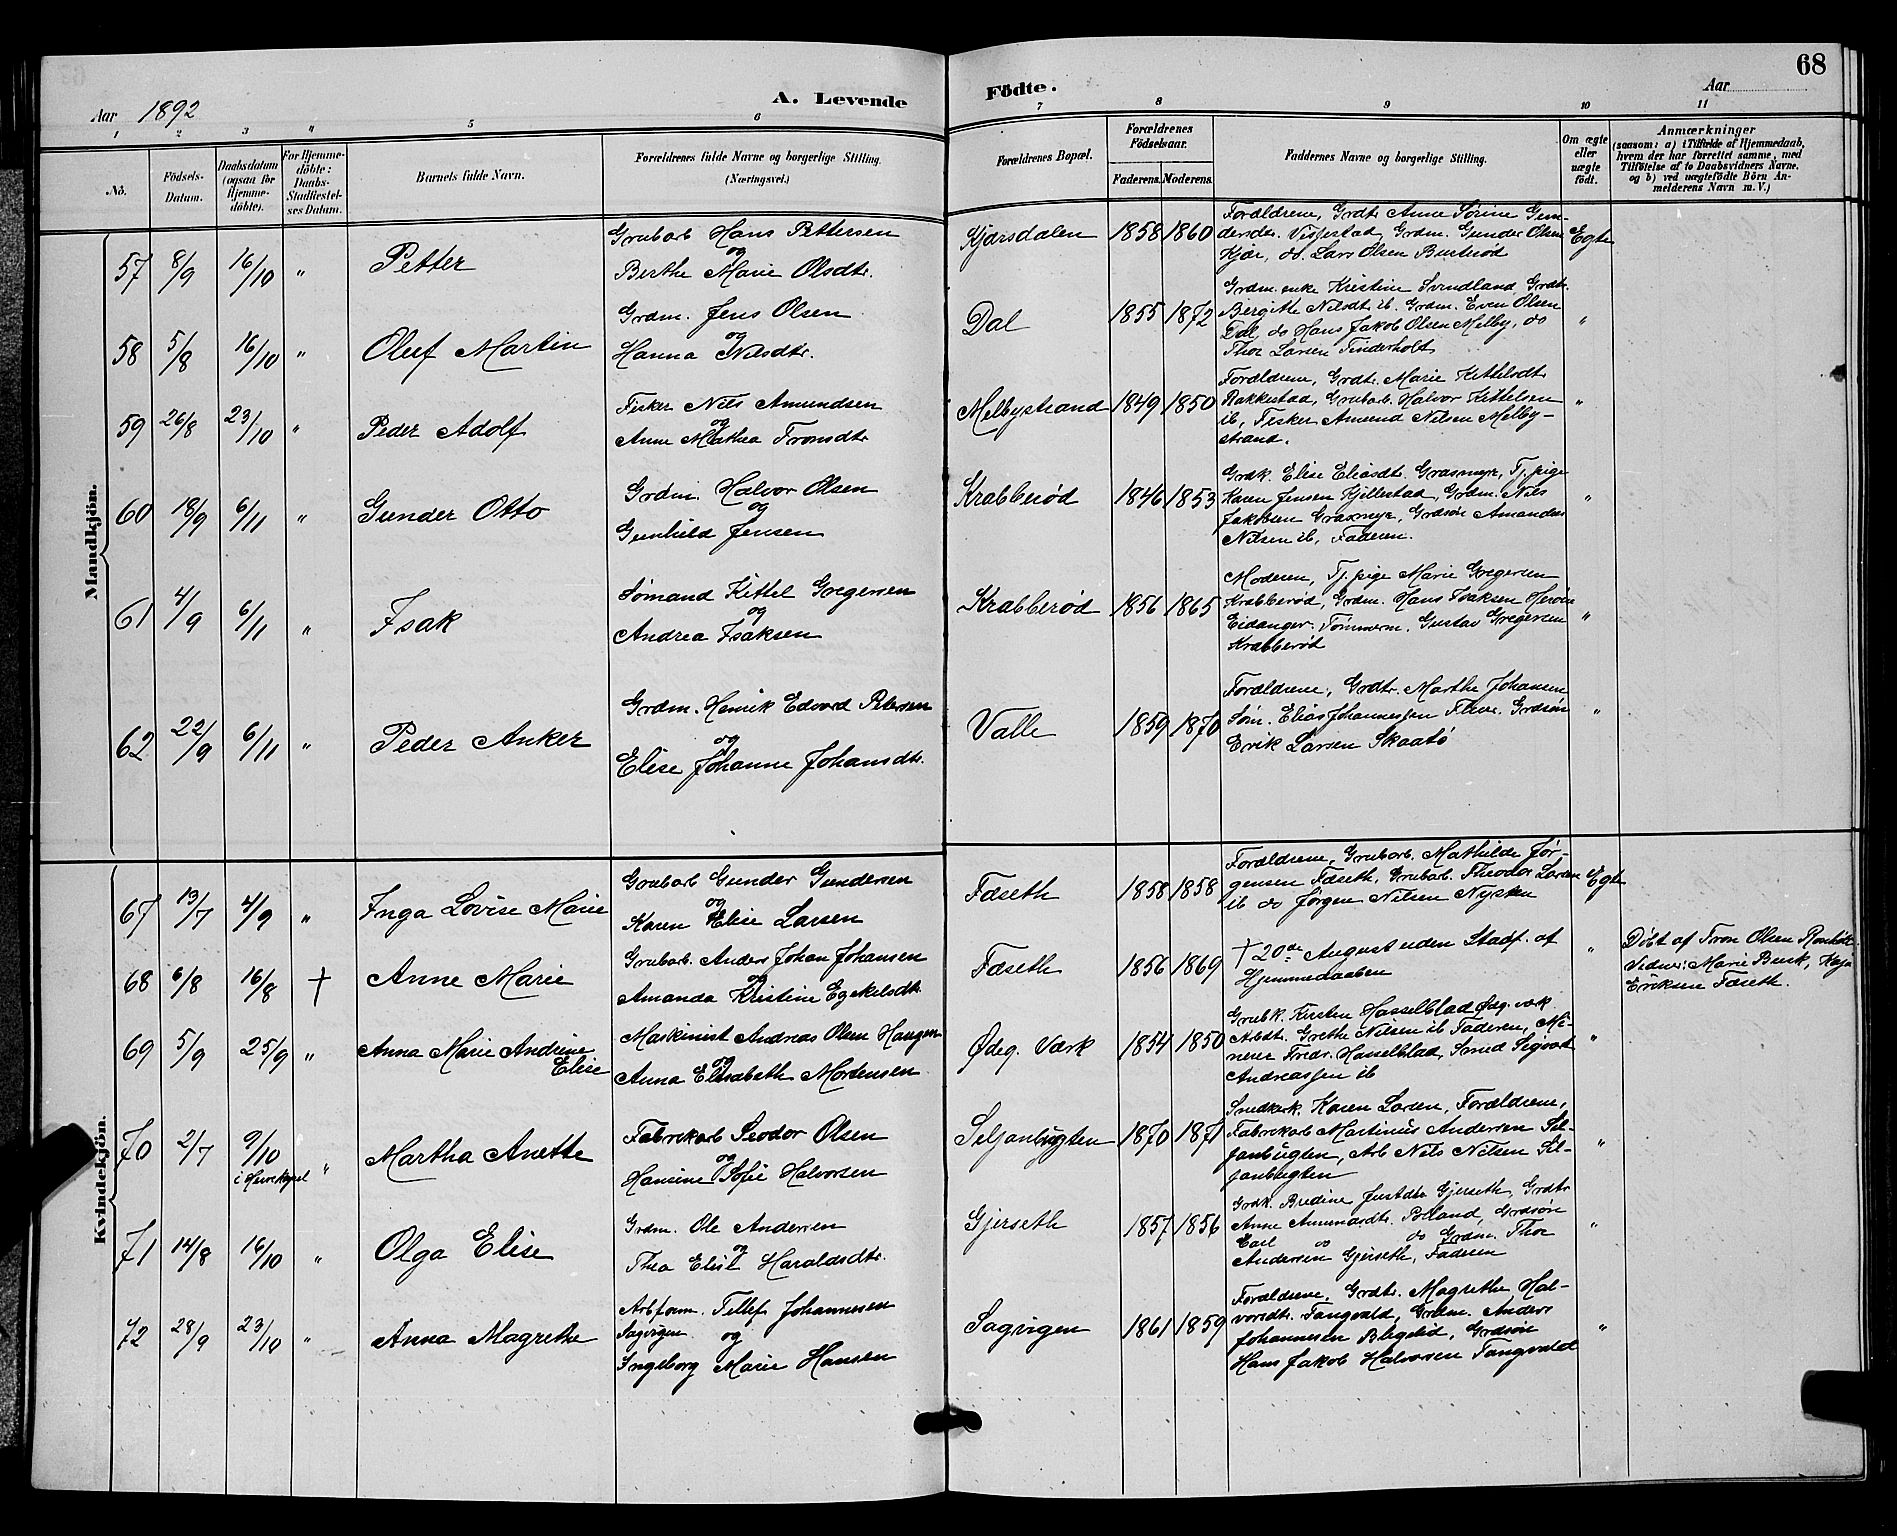 68
Aar 1892
A. Levende
Födte.
Aar
1 2 3 " 5 6 7 8 9 10 11
No.
Födsels-
Datum.
Daabsdatum
(ogsaa for
Hjemme-
döbte).
For Hjemme-
döbte:
Daabs-
Stadfæstel-
ses Datum.
Barnets fulde Navn.
Forældrenes fulde Navne og borgerlige Stilling.
(Næringsvei.)
Forældrenes Bopæl.
Forældrenes
Födselsaar.
Faderens. Moderens.
Faddernes Navne og borgerlige Stilling.
Om ægte
eller
uægte
födt.
Anmærkninger
(saasom: a) i Tilfælde af Hjemmedaab,
hvem der har forrettet samme, med
Tilföielse af to Daabsvidners Navne,
og b) ved uægtefödte Börn An-
melderens Navn m. V.)
Mandkjön.
57 8/9 16/10 " Petter
Grubarb Hans Pettersen
og
Berthe Marie Olsdtr.
Kjærsdalen 1858 1860
Forældrene, Grdtr. Anne Sørine Gun-
dersdtr. Vissestad, Grdm. Gunder Olsen
Kjær, do. Lars Olsen Busterød
Egte
58 5/8 16/10 " Oluf Martin
Grdm. Jens Olsen
og
Hanna Nilsdtr.
Dal 1855 1872
Grdm. enke Kristine Svindland Grdtr.
Bergitte Nilsdt. ib. Grdm. Even Olsen
Dal, do Hans Jakob Olsen Melby, do
Thor Larsen Tinderholt
"
59 26/8 23/10 " Peder Adolf
Fisker Nils Amundsen
og
Anne Mathea Tronsdtr
Melbystrand 1849 1850
Forældrene, Grdtr. Marie Kittelsdtr
Rakkestad, Grubarb. Halvor Kittelsen
ib, Fisker Amund Nilsen Melby-
strand.
"
60 18/9 6/11 " Gunder Otto
Grdm. Halvor Olsen
og
Gunhild Jensen
Krabberød 1846 1853
Grdk. Elise Eliasdtr. Grasmyr, Tj. pige
Karen Jensen Kjellestad, Grdm. Nils
Jakobsen Grasmyr, Grdsøn Amandus
Nilsen ib, Faderen.
"
61 4/9 6/11 " Isak
Sømand Kittel Gregersen
og
Andrea Isaksen
Krabberød 1856 1865
Moderen, Tj. pige Marie Gregersen
Krabberød, Grdm. Hans Isaksen
Eidanger. Tømmerm. Gustav Gregersen
Krabberød
"
62 22/9 6/11 " Peder Anker
Grdm. Henrik Edvard Petersen
og
Elise Johanne Johansdtr.
Valle 1859 1870
Forældrene, Grdtr. Marthe Johansen
Søm. Elias Johannessen Grdsøn
Erik Larsen Skaatø
"
Kvindekjön.
67 13/7 4/9 " Inga Lovise Marie
Grubarb Gunder Gundersen
og
Karen Elise Larsen
Fæseth 1858 1858
Forældrene, Grubarb. Mathilde Jør-
gensen Fæseth, Grubarb. Theodor Larsen
ib do Jørgen Nilsen Nysten
Egte
68 6/8 16/8 † Anne Marie
Grubarb. Anders Johan Johansen
og
Amanda Kristine Ezekielsdtr.
Fæseth 1856 1869
† 20de August uden Stadf. af
Hjemmedaaben
"
Døbt af Tron Olsen Rønholt
Vidner: Marie Busk, Kaja
Eriksen Fæseth.
69 5/9 25/9 " Anna Marie Andrine
Elise
Maskinist Andreas Olsen Haugen
og
Anna Elisabeth Mortensen
Ødeg. Værk 1854 1850
Grubk. Kirsten Hasselblad Ødg. værk
Arbdt. Grethe Nilsen ib Faderen, Mi-
nerer Fredr. Hasselblad, Smed Sigvat
Andreassen ib
"
70 2/7 9/10
i Herrekapel
" Martha Anette
Fabrikarb Teodor Olsen
og
Hansine Sofie Halvorsen
Seljanbugten 1870 1871
Snedkerk. Karen Larsen, Forældrene,
Fabrikarb Martinus Andersen Sel-
janbugten, Arb Nils Nilsen Sel-
janbugten
"
71 14/8 16/10 " Olga Elise
Grdm. Ole Andersen
og
Thea Elise Haraldsdtr.
Gjerseth 1857 1856
Grdk. Bredine Justdtr Gjerseth, Grdtr
Anne Amundsdtr. Rolland, Grdsøn
Carl do do Grdm. Thor
Andersen Gjerseth, Faderen
"
72 28/9 23/10 " Anna Magrethe
Arbform. Tellef Johannesen
Sagvigen og
Ingeborg Marie Hansen
Sagvigen 1861 1859
Forældrene, Grdtr. Magrethe Hal-
vorsdtr. Tangvald, Grdm. Anders
Johannesen Blegebid, Grdsøn
Hans Jakob Halvorsen Tangvald
"